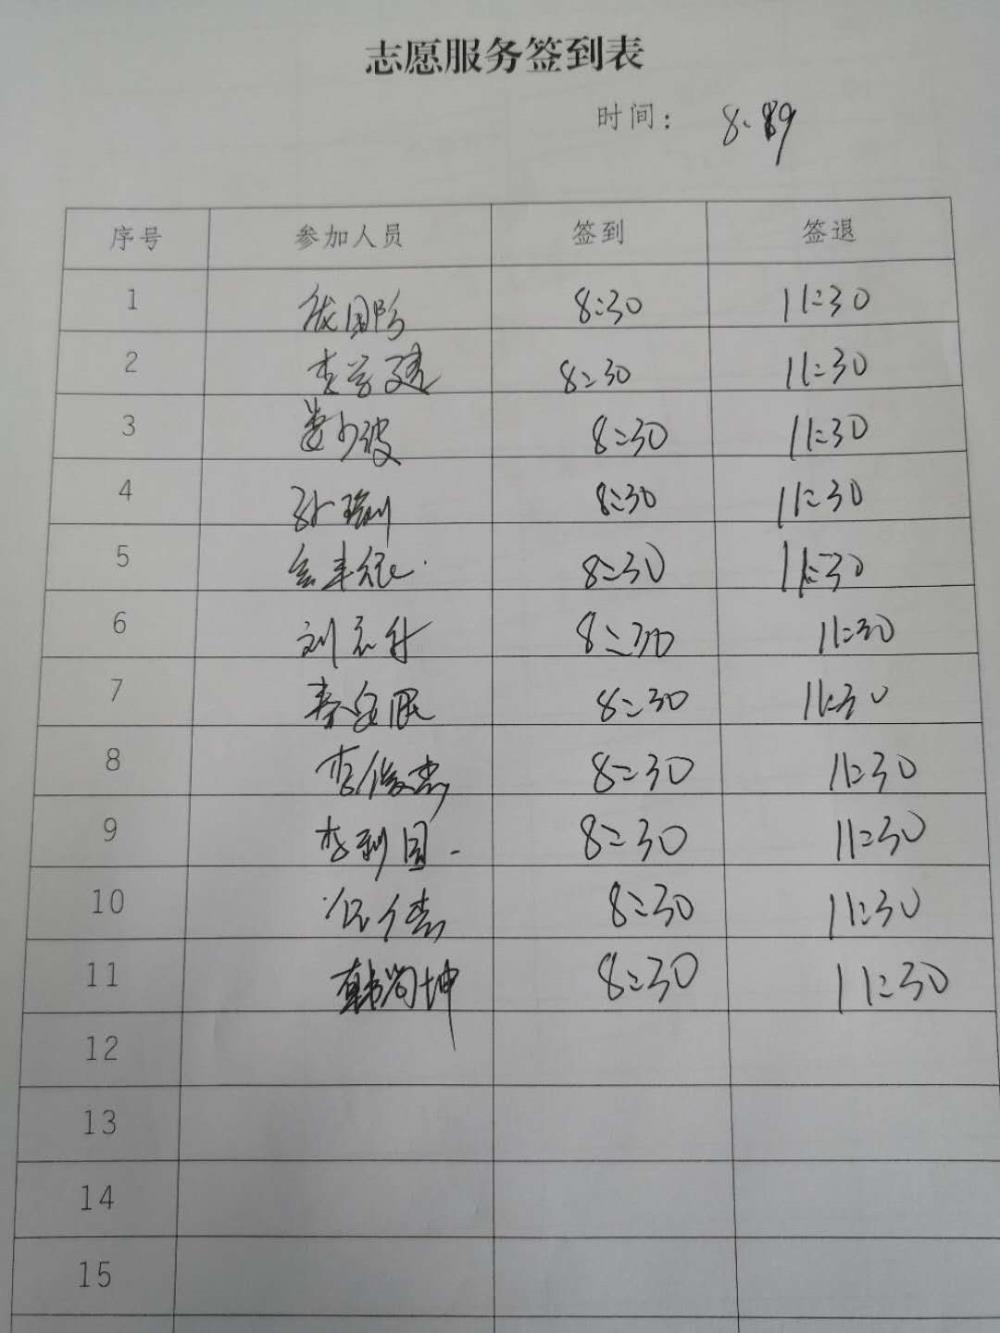 志愿服务签到表
时间: 8.
序号 参加人员 签到 签退
1 国防 8:30 11:30
2 李学建 8:30 11:30
3 娄少波 8:30 11:30
4 孙瑞 8:30 11:30
5 8:30 11:30
6 刘志升 8:30 11:30
7 秦 8:30 11:30
8 李俊杰 8:30 11:30
9 李利国 8:30 11:30
10 8:30 11:30
11 韩尚坤 8:30 11:30
12
13
14
15